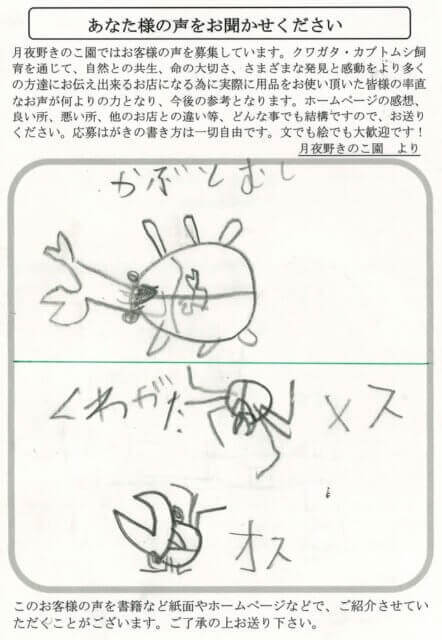 あなた様の声をお聞かせください
月夜野きのこ園ではお客様の声を募集しています。クワガタ・カブトムシ飼
育を通じて、自然との共生、命の大切さ、さまざまな発見と感動をより多く
の方達にお伝え出来るお店になる為に実際に用品をお使い頂いた皆様の率直
なお声が何よりの力となり、今後の参考となります。ホームページの感想、
良い所、悪い所、他のお店との違い等、どんな事でも結構ですので、お送り
ください。応募はがきの書き方は一切自由です。文でも絵でも大歓迎です！
月夜野きのこ園　より
かぶとむし
くわがた
メス
オス
このお客様の声を書籍など紙面やホームページなどで、ご紹介させていた
だくことがございます。ご了承の上お送り下さい。